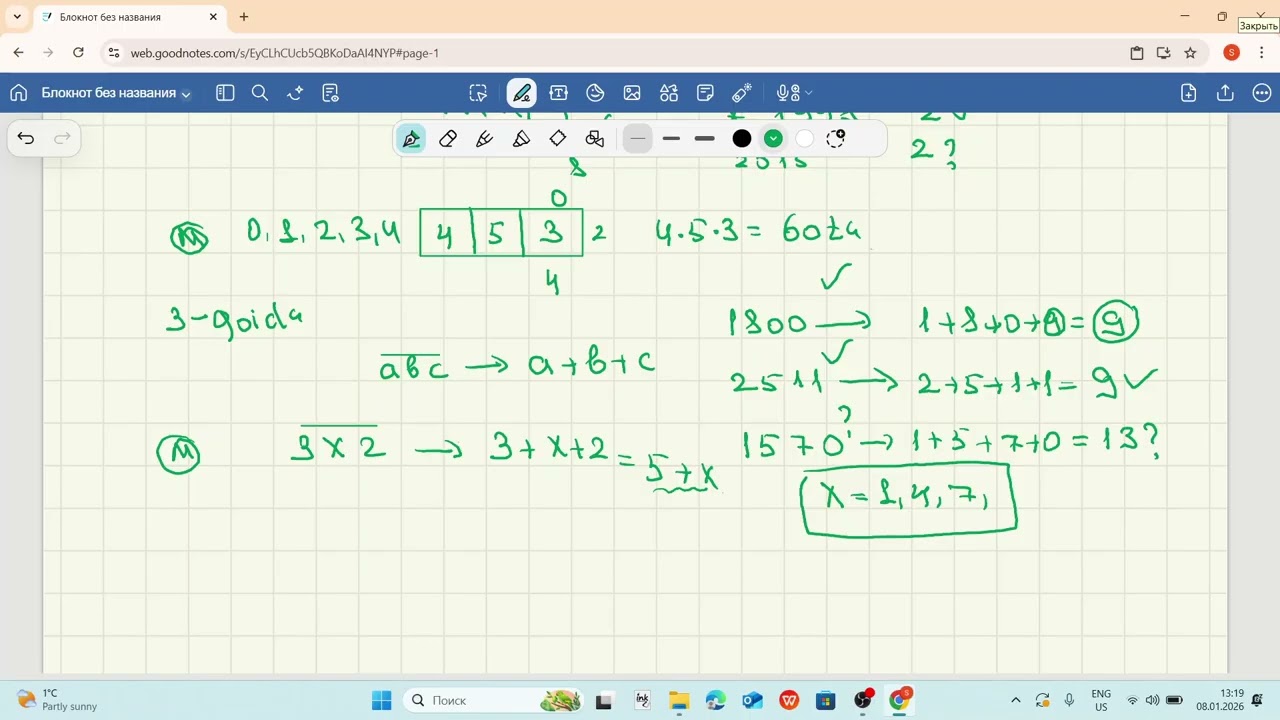 Блокнот без названия
Закрыть
web.goodnotes.com/s/EyCLhCUcb5QBKoDaAI4NYP#page-1
S
Блокнот без названия
2015
2?
8
0
M 0, 1, 2, 3, 4 4 5 3 2 4·5·3 = 60 ta
4
3-qoida
1800 → 1+8+0+0=9
abc → a+b+c
2511 → 2+5+1+1=9
M 3x2 → 3+x+2=5+x
1570 ? → 1+5+7+0=13?
x=1,4,7,
1°C
Partly sunny
Поиск
ink
ENG
US
13:19
08.01.2026